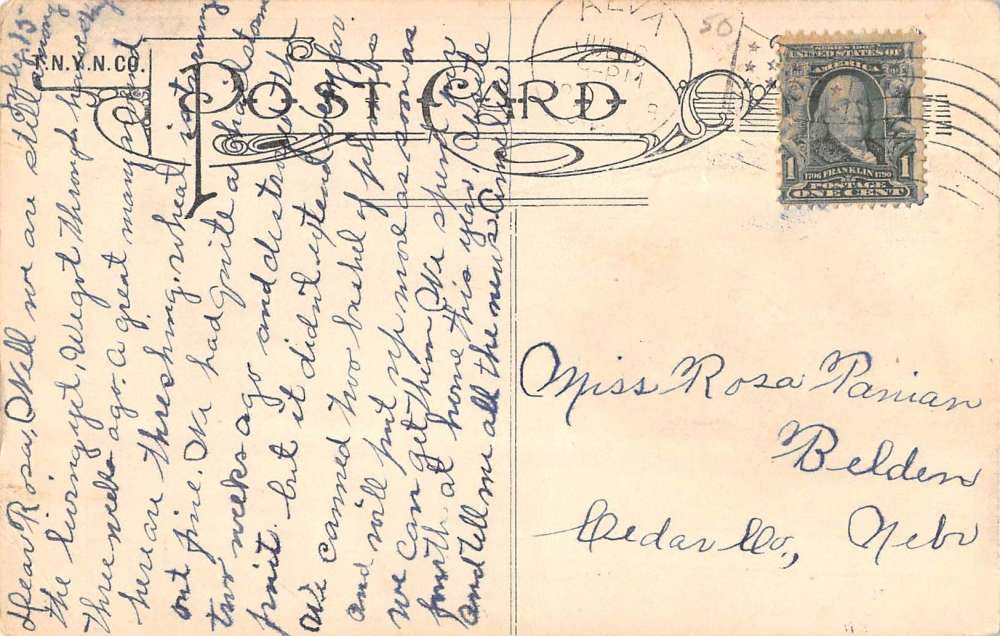 T.N.Y.N.CO.
POST CARD
ALVA
JUL
PM
50
SERIES 1902
UNITED STATES OF
AMERICA
1 1
1706 FRANKLIN 1790
POSTAGE
ONE CENT
Miss Rosa Panian
Belden
Cedar Co., Nebr
July 15-
Dear Rosa, Well we are still among
the living yet, We got through harvesting
three weeks ago. A great many around
here are threshing, wheat is turning
out fine. We had quite a hail storm
two weeks ago and destroyed the
fruit but it didn't extend very far
We canned two bushel of plums
and will put up more as soon as
we can get them We spent the
fourth at home this year, Write
and tell me all the news Amelia